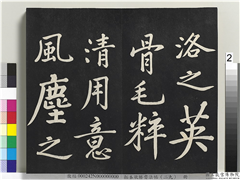 洛之英
骨毛粹
清用意
風塵之
2